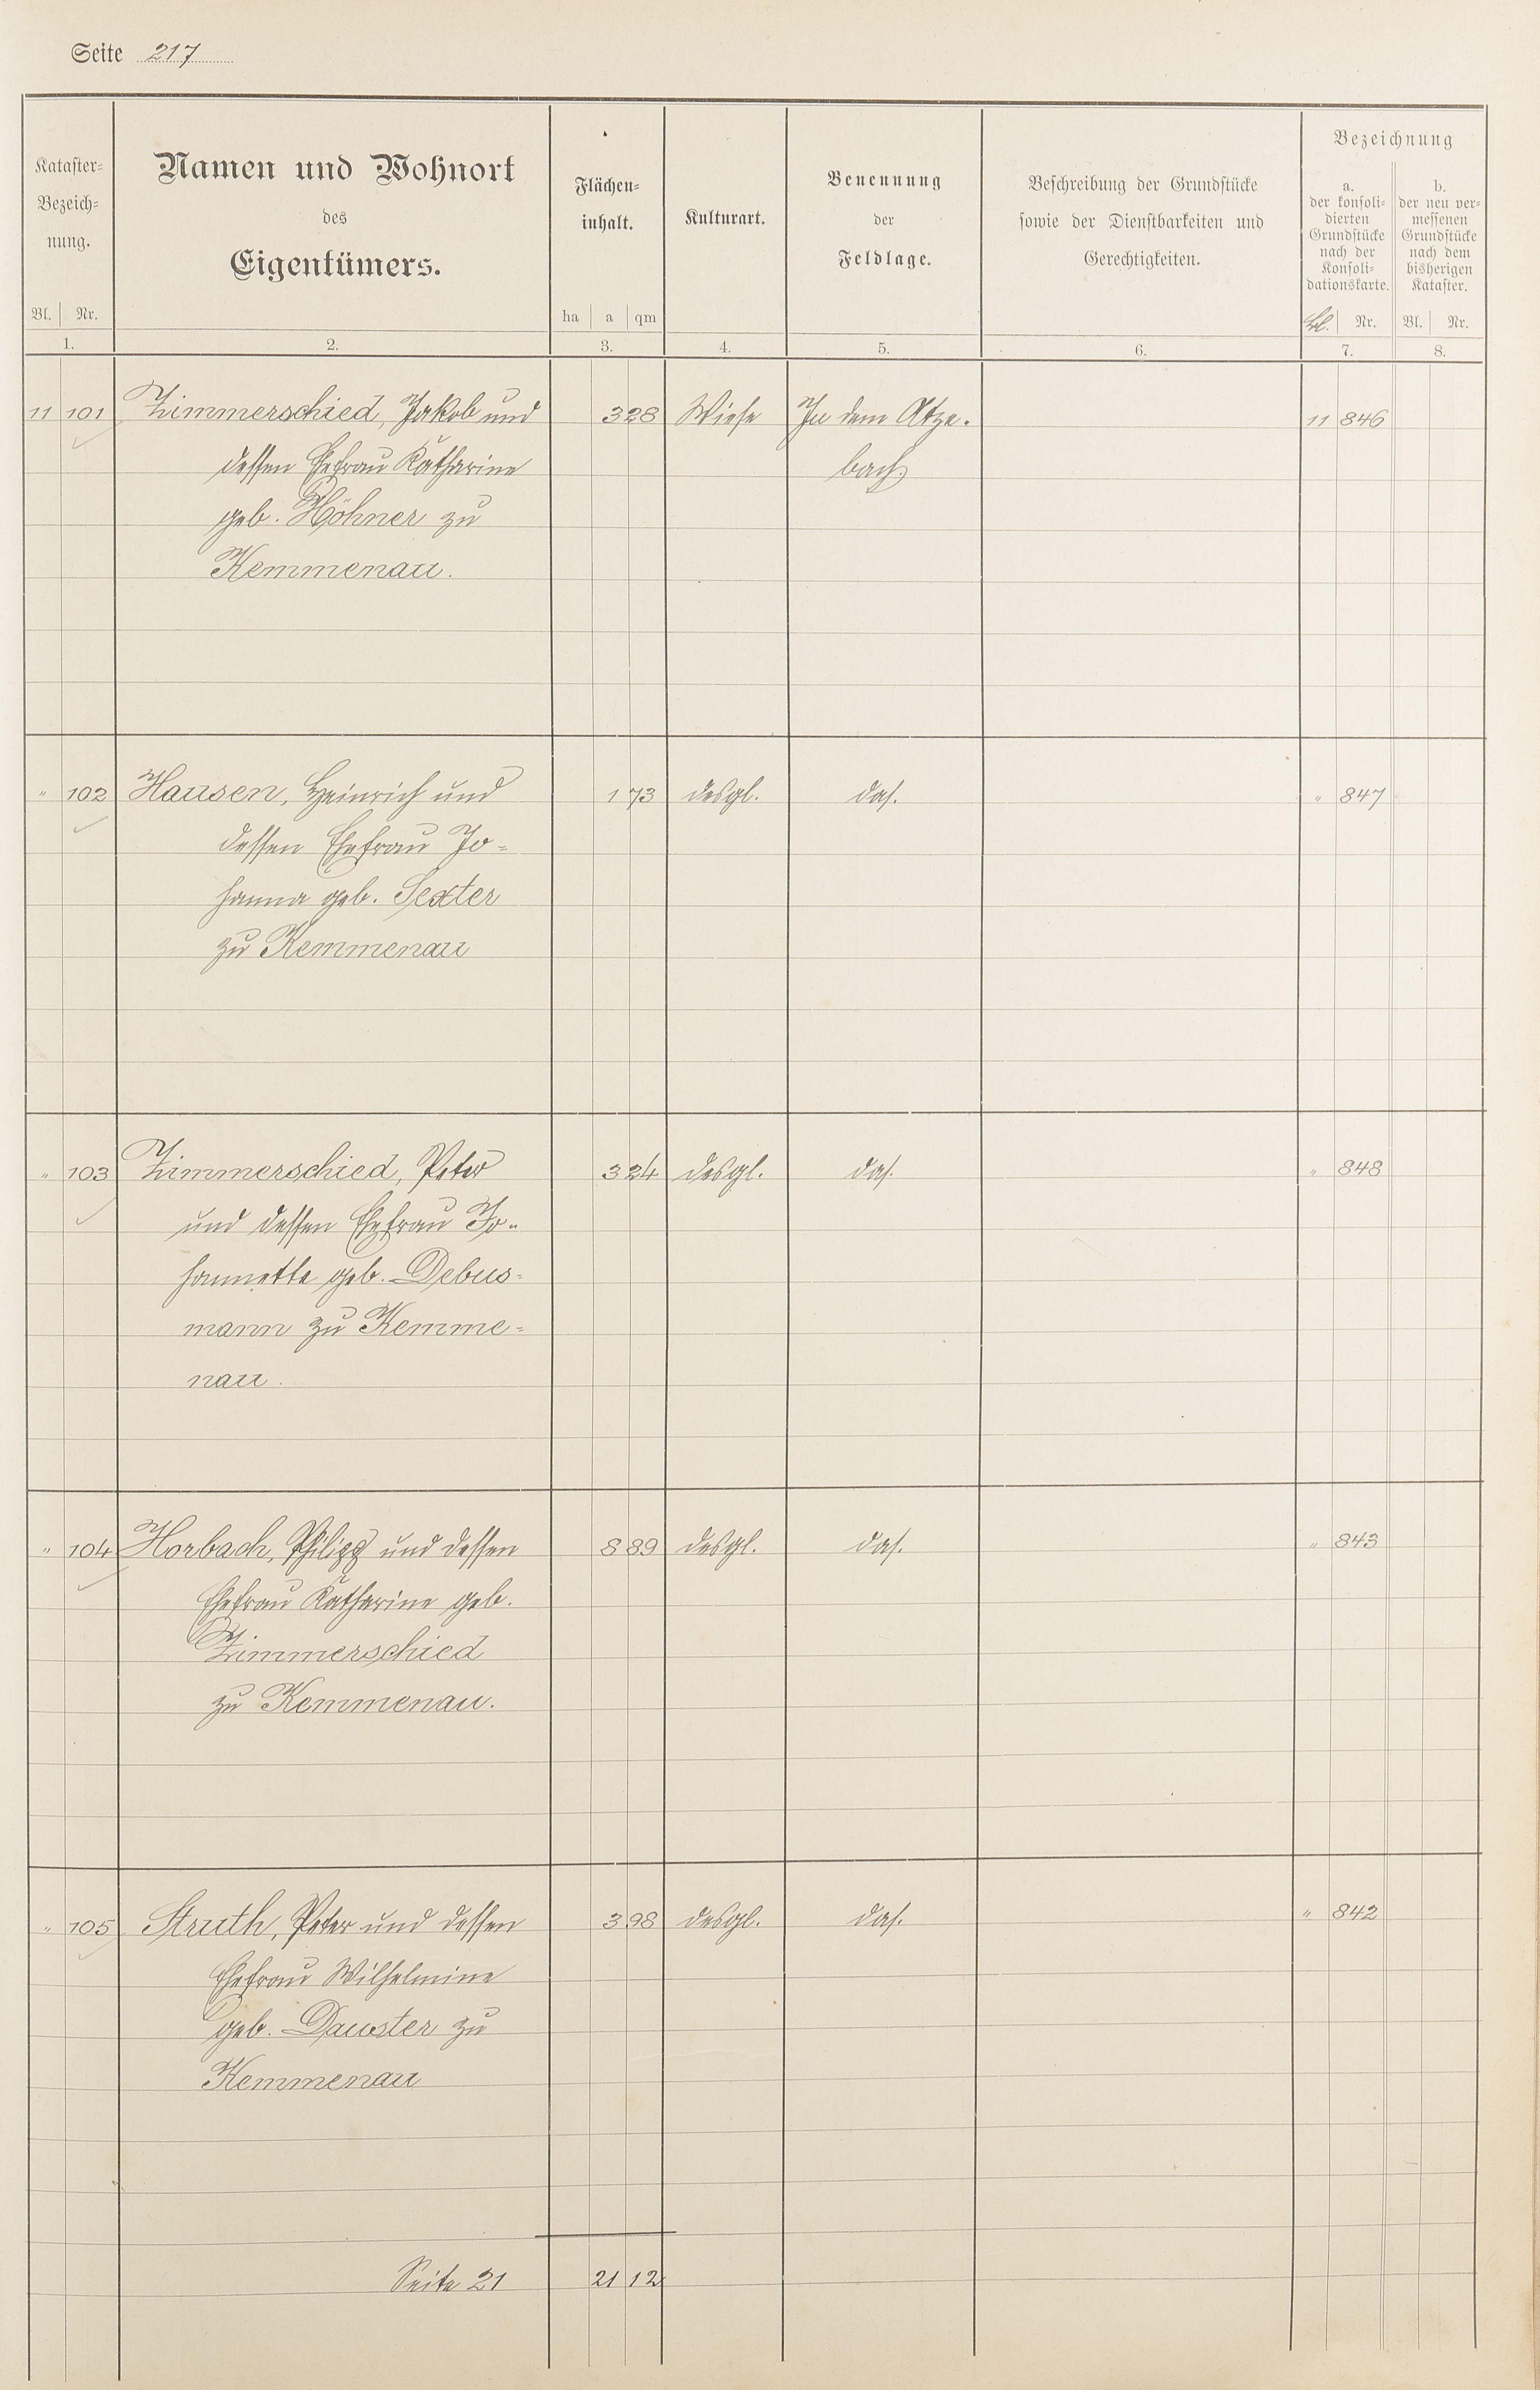 Seite 217
Kataster-
Bezeich-
nung.
Bl. Nr.
1.
Namen und Wohnort
des
Eigentümers.
2.
Flächen-
inhalt.
ha a qm
3.
Kulturart.
4.
Benennung
der
Feldlage.
5.
Beschreibung der Grundstücke
sowie der Dienstbarkeiten und
Gerechtigkeiten.
6.
Bezeichnung
a.
der konsoli-
dierten
Grundstücke
nach der
Konsoli-
dationskarte.
Bl. Nr.
7.
b.
der neu ver-
messenen
Grundstücke
nach dem
bisherigen
Kataster.
Bl. Nr.
8.
11 101 Zimmerschied, Jakob und 3 28 Wiese In dem Atze- 11 846
dessen Ehefrau Katharine bach
geb. Höhner zu
Kemmenau.
" 102 Hausen, Heinrich und 1 73 desgl. das. " 847
dessen Ehefrau Jo-
hanna geb. Sexter
zu Kemmenau
" 103 Zimmerschied, Peter 3 24 desgl. das. " 848
und dessen Ehefrau Jo-
hannette geb. Debus-
mann zu Kemme-
nau.
" 104 Horbach, Philipp und dessen 8 89 desgl. das. " 843
Ehefrau Katharine geb.
Zimmerschied
zu Kemmenau.
" 105 Struth, Peter und dessen 3 98 desgl. das. " 842
Ehefrau Wilhelmine
geb. Dauster zu
Kemmenau
Seite 21 21 12